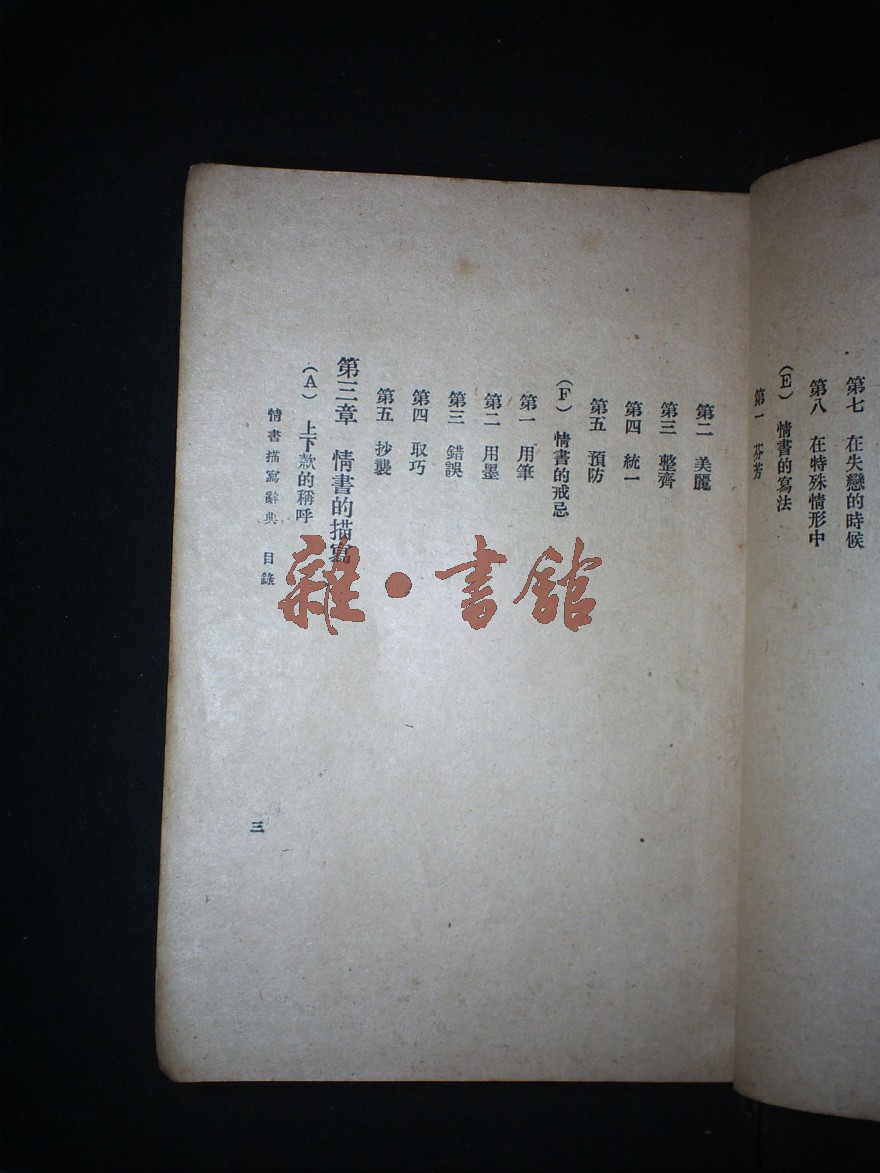 第七　在失戀的時候
第八　在特殊情形中
（E）　情書的寫法
第一　芬芳
第二　美麗
第三　整齊
第四　統一
第五　預防
（F）　情書的戒忌
第一　用筆
第二　用墨
第三　錯誤
第四　取巧
第五　抄襲
第三章　情書的描寫
（A）　上下款的稱呼
情書描寫辭典　目錄
三
雜·書館